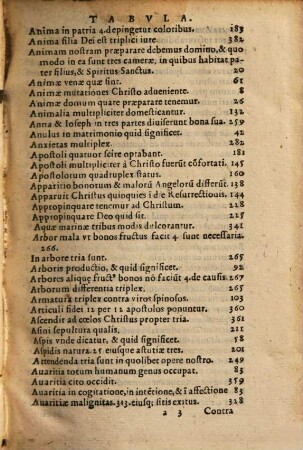 TABVLA.
Anima in patria 4. depingetur coloribus. 183
Anima filia Dei est triplici iure. 382
Animam nostram præparare debemus domino, & quo
modo in ea sunt tres cameræ, in quibus habitat pa
ter filius, & Spiritus Sanctus. 20
Animæ venæ quæ sint. 61
Animæ mutationes Christo adueniente. 8
Animæ domum quare præparare tenemur. 21
Animalia multipliciter domesticantur. 132
Anna & Ioseph in tres partes diuiserunt bona sua. 259
Anulus in matrimonio quid significet. 42
Anxietas multiplex. 282
Apostoli quatuor scire optabant. 181
Apostoli multipliciter à Christo fuerūt cōfortati. 145
Apostolorum quadruplex status. 160
Apparitio bonorum & malorū Angelorū differūt. 138
Apparuit Christus quinquies ī die Resurrectionis. 144
Appropinquare tenemur ad Christum. 28
Appropinquare Deo quid sit. 215
Aquæ marinæ tribus modis dulcorantur. 341
Arbor mala vt bonos fructus faciat 4. sunt necessaria.
266.
In arbore tria sunt. 265
Arboris productio, & quid significet. 92
Arbores aliquę fruct⁹ bonos nō faciūt 4. de causis. 267
Arborum differentia triplex. 265
Armatura triplex contra viros spinosos. 103
Articuli fidei 12 per 12 apostolos ponuntur. 360
Ascendit ad cœlos Christus propter tria. 361
Asini sepultura qualis. 211
Aspis vnde dicatur, & quid significet. 58
Aspidis natura. 25 eiusque astutiæ tres. 210
Attendenda tria sunt in quolibet opere nostro. 249
Auaritia totum humanum genus occupat. 83
Auaritia cito occidit. 359
Auaritia in cogitatione, in intētione, & ī affectione 83
Auaritiæ malignitas. 313. eiusq; sitis exitus. 328
a 3 Contra